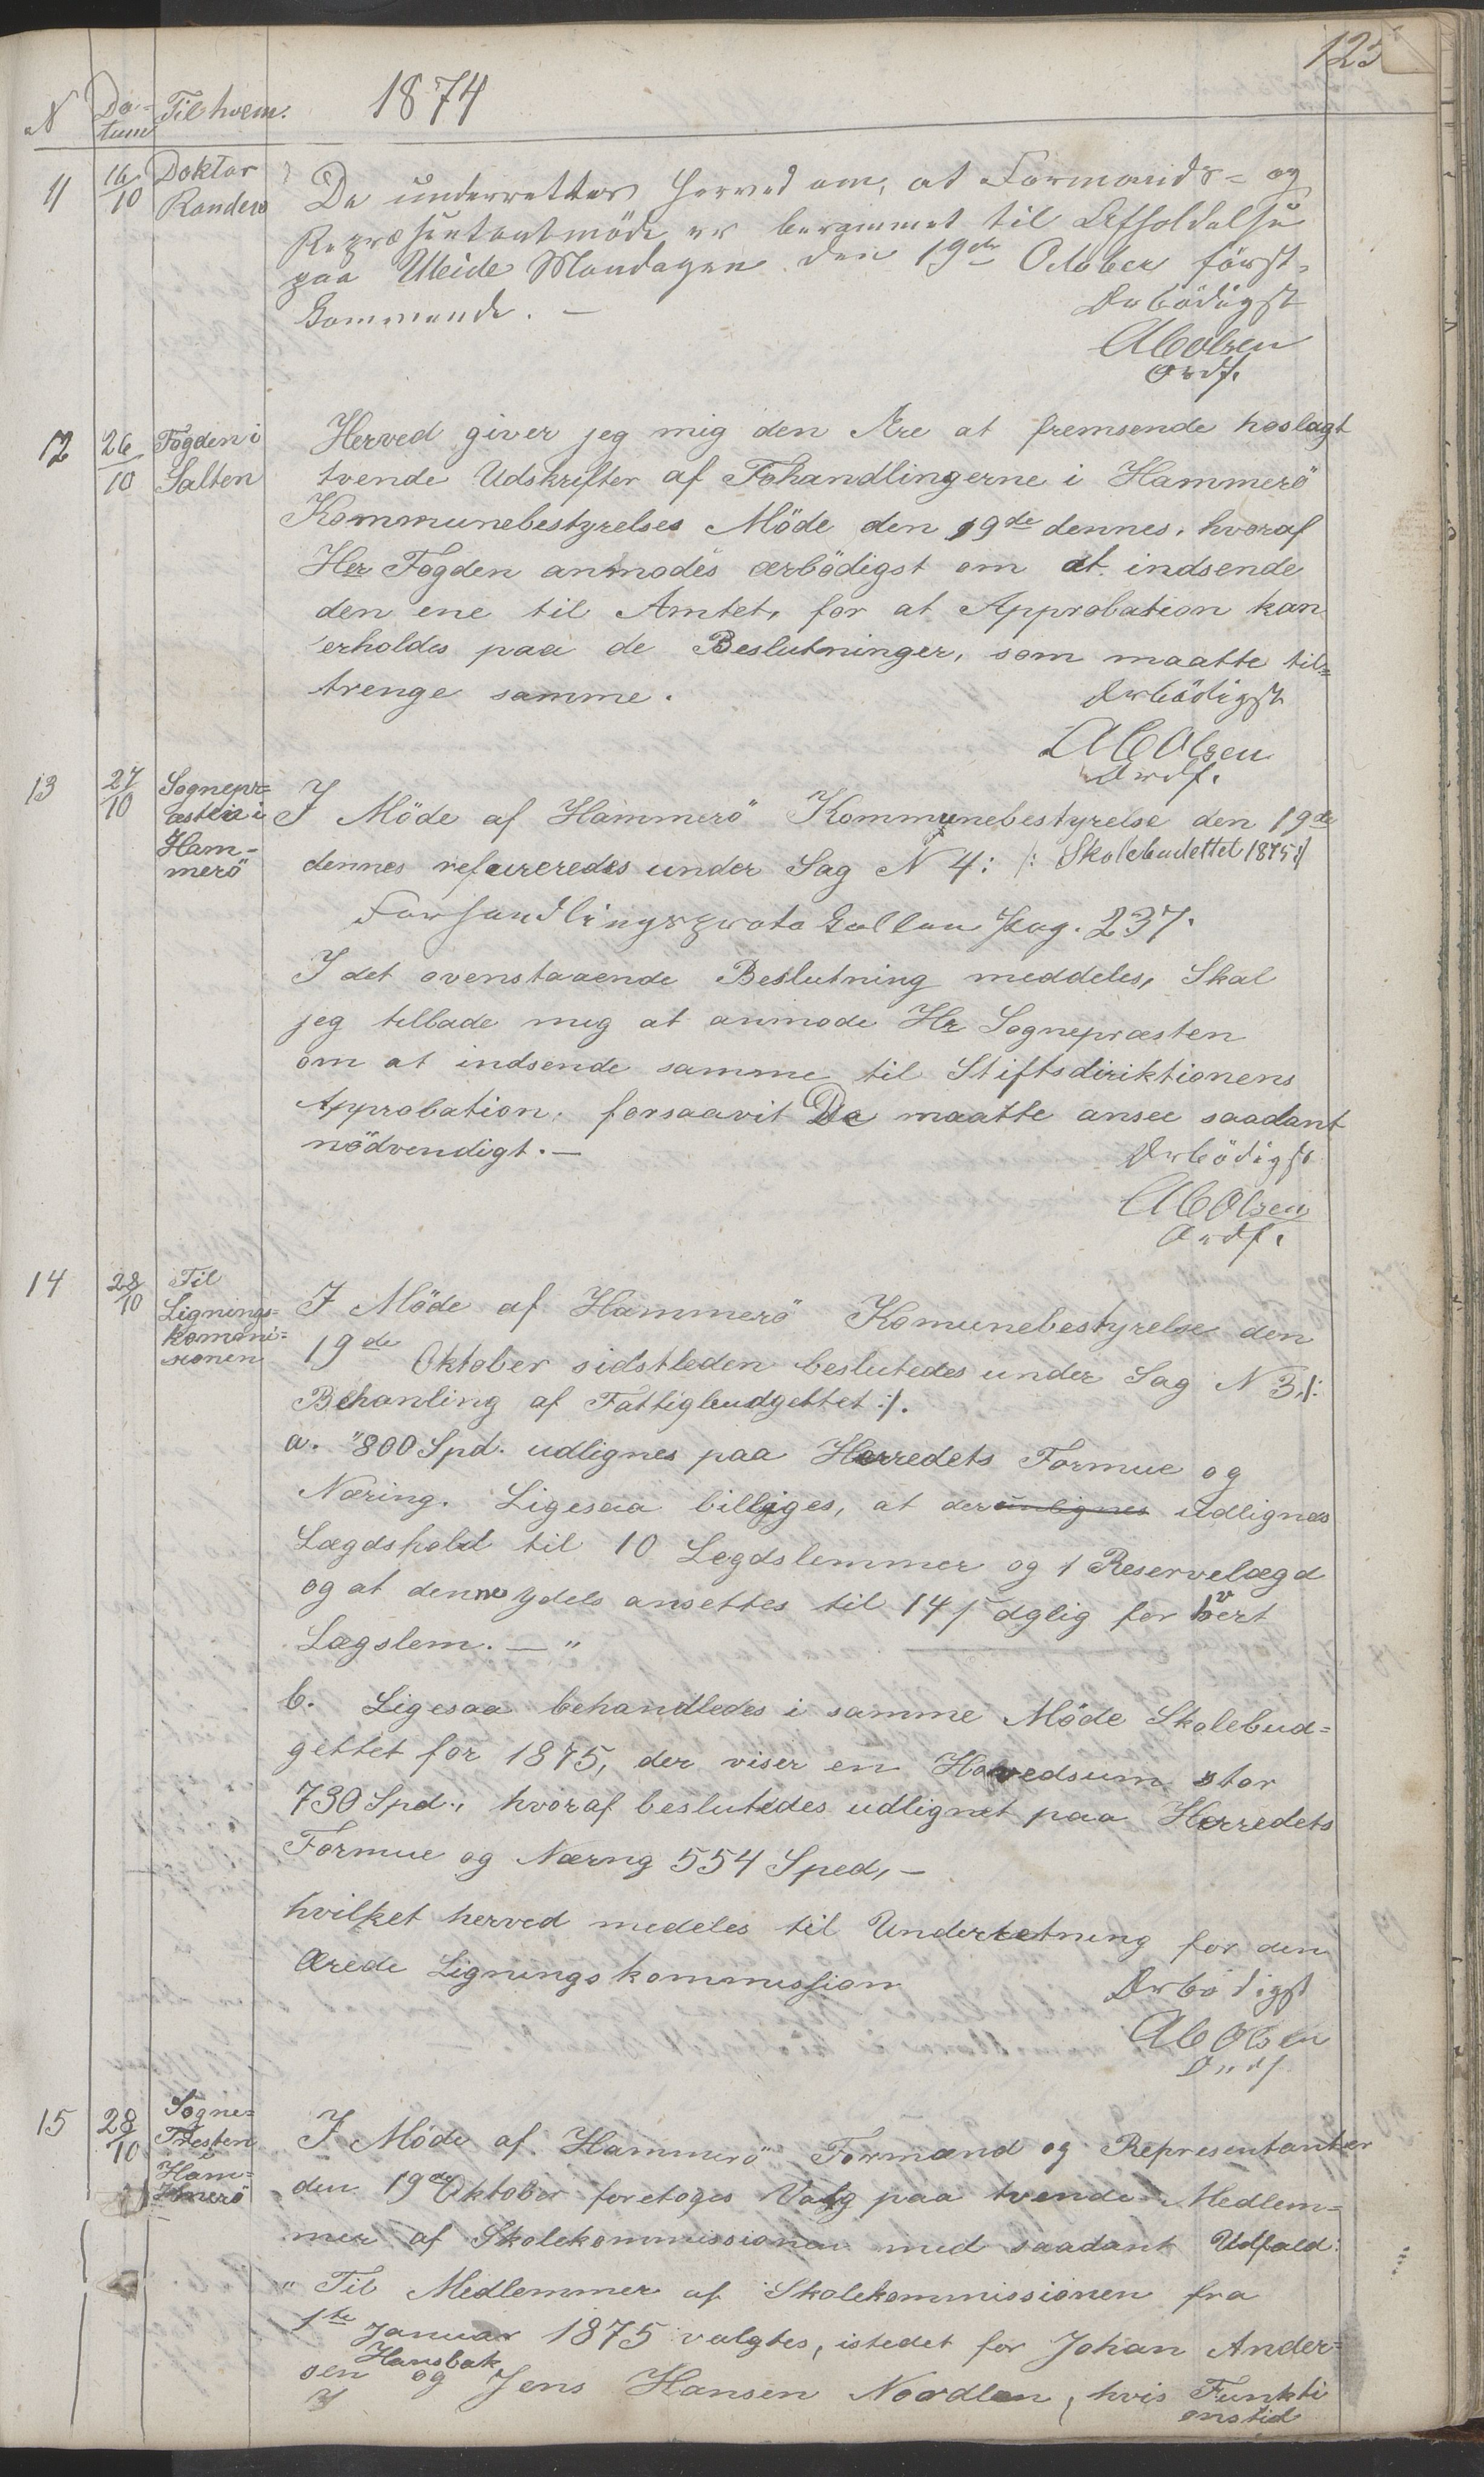 125
N Da-tum Til hvem. 1874
11 16/10 Doktor Randers
De underrettes herved om, at Formands- og
Repræsentantmöde er berammet til Afholdelse
paa Uleide Mandagen den 19de October först-
kommende. —
Ærbödigst
ACOlsen
Ordf.
12 26/10 Fogden i Salten
Herved giver jeg mig den Ære at fremsende hoslagt
tvende Udskrifter af Fohandlingerne i Hammerö
Kommunebestyrelses Möde den 19de dennes, hvoraf
Her Fogden anmodes ærbödigst om at indsende
den ene til Amtet, for at Approbation kan
erholdes paa de Beslutninger, som maatte til-
trenge samme.
Ærbödigst
ACOlsen
Ordf.
13 27/10 Sognepr-æsten i Ham-merö
I Möde af Hammerö Kommunebestyrelse den 19de
dennes refereredes under Sag N 4: /: Skolebudettet 1875 :/
Forhandlingsprotokollen Pag. 237.
I det ovenstaaende Beslutning meddeles, Skal
jeg tillade mig at anmode Hr Sognepræsten
om at indsende samme til Stiftsdiriktionens
Approbation. forsaavit De maatte ansee saadant
nödvendigt. —
Ærbödigst
ACOlsen
Ordf.
14 28/10 Til Lignings-kommi-sionen
I Möde af Hammerö Komunebestyrelse den
19de Oktober sidstleden beslutedes under Sag N 3 /:
Behanling af Fattigbudgettet :/.
a. "800 Spd. udlignes paa Herredets Formue og
Næring. Ligesaa billiges, at der unlignes udlignes
Lægdshold til 10 Legdslemmer og 1 Reservelægd
og at denne ydels ansettes til 14 ſ dglig for hvert
Lægslem. — "
b. Ligesaa behandledes i samme Möde Skolebud-
gettet for 1875, der viser en Hovedsum stor
730 Spd., hvoraf beslutedes udlignet paa Herredets
Formue og Nærng 554 Sped, —
hvilket herved medeles til Underretning for den
Ærede Ligningskommission
Ærbödigst
ACOlsen
Ordf
15 28/10 Sogne-Presten i Ham-merö
I Möde af Hammerö Formænd og Representanter
den 19de Oktober foretoges Valg paa tvende Medlem-
mer af Skolekommissionen med saadant Udfald:
" Til Medlemmer af Skolekommissionen fra
1ste Januar 1875 valgtes, istedet for Johan Ander-
sen Hansbak og Jens Hansen Nordlan, hvis Funkti
onstid